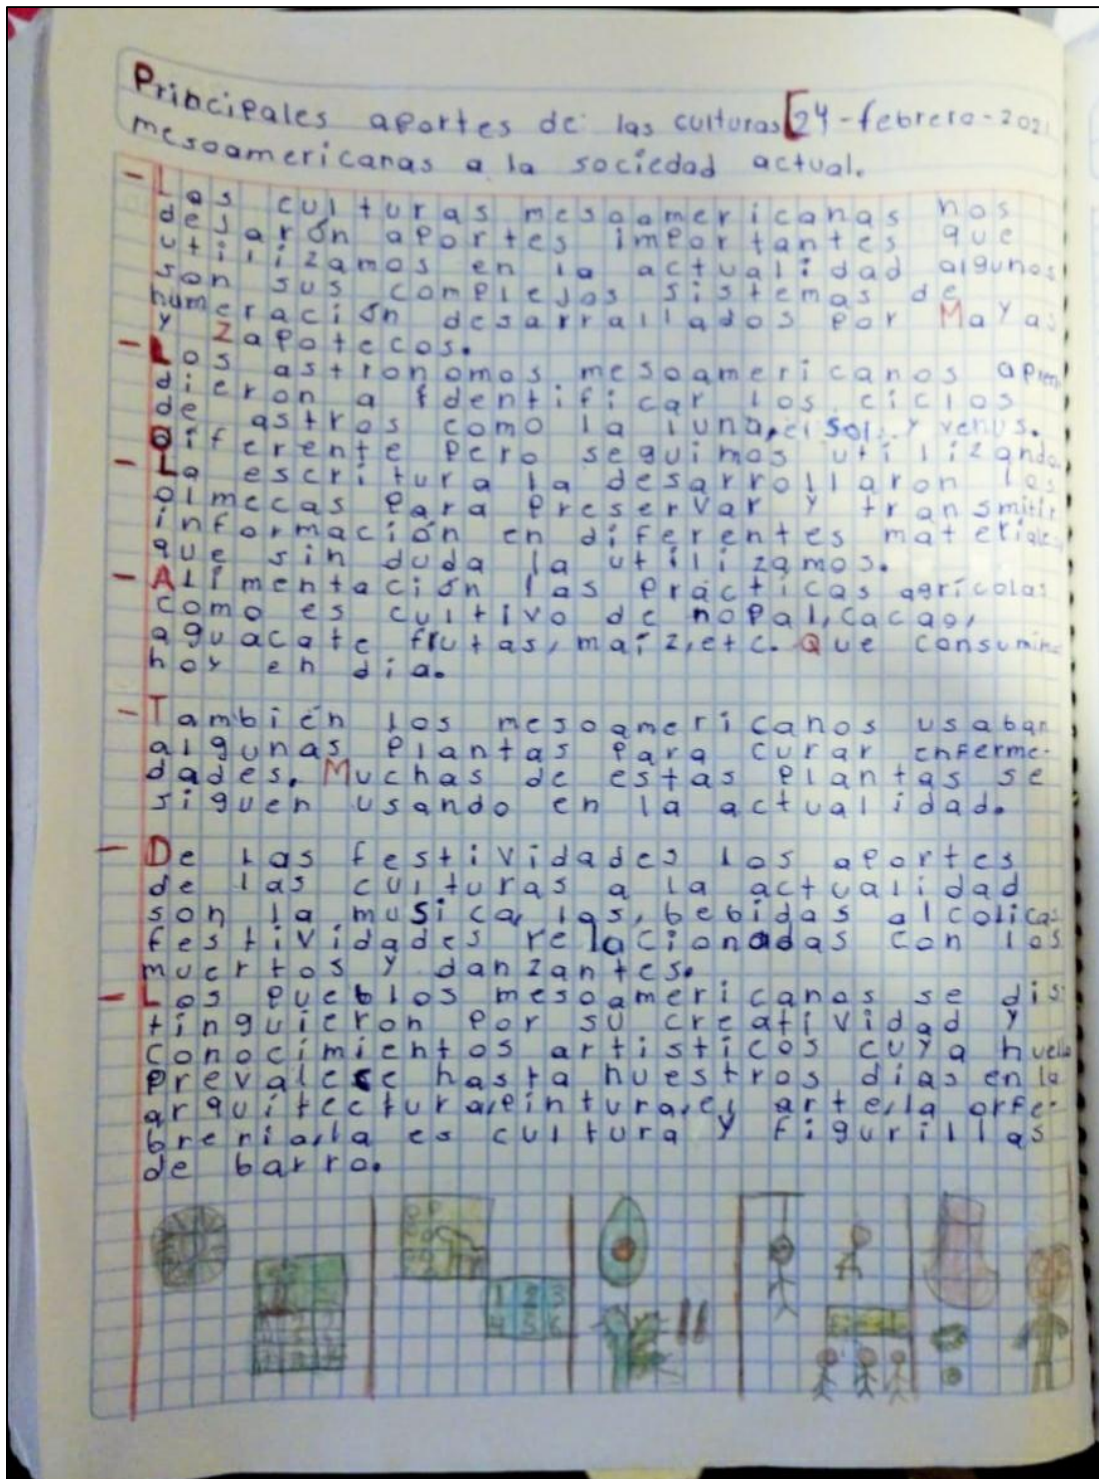 Principales aportes de las culturas [24-febrero-2021
mesoamericanas a la sociedad actual.
- Las culturas mesoamericanas nos
dejarón aportes importantes que
utilizamos en la actualidad algunos
son sus complejos sistemas de
numeración desarrallados por Mayas
y Zapotecos.
- Los astronomos mesoamericanos apren
dieron a identificar los ciclos
de astros como la luna, el sol y venus.
Diferente pero seguimos utilizando.
- La escritura la desarrollaron los
olmecas para preservar y transmitir
información en diferentes materiales
que sin duda la utilizamos.
- Alimentación las prácticas agrícolas
como es cultivo de nopal, cacao,
aguacate frutas, maíz, etc. Que consumimo
hoy en dia.
- También los mesoamericanos usaban
algunas plantas para curar enferme-
dades. Muchas de estas plantas se
siguen usando en la actualidad.
- De las festividades los aportes
de las culturas a la actualidad
son la musica, las, bebidas alcolicas
festividades relacionadas con los
muertos y danzantes.
- Los pueblos mesoamericanos se dis
tinguieron por su creatividad y
conocimientos artisticos cuya huella
prevalece hasta nuestros dias en la
arquitectura, pintura, el arte, la orfe-
breria, la es cultura y figurillas
de barro.
1 2 3
4 5 6